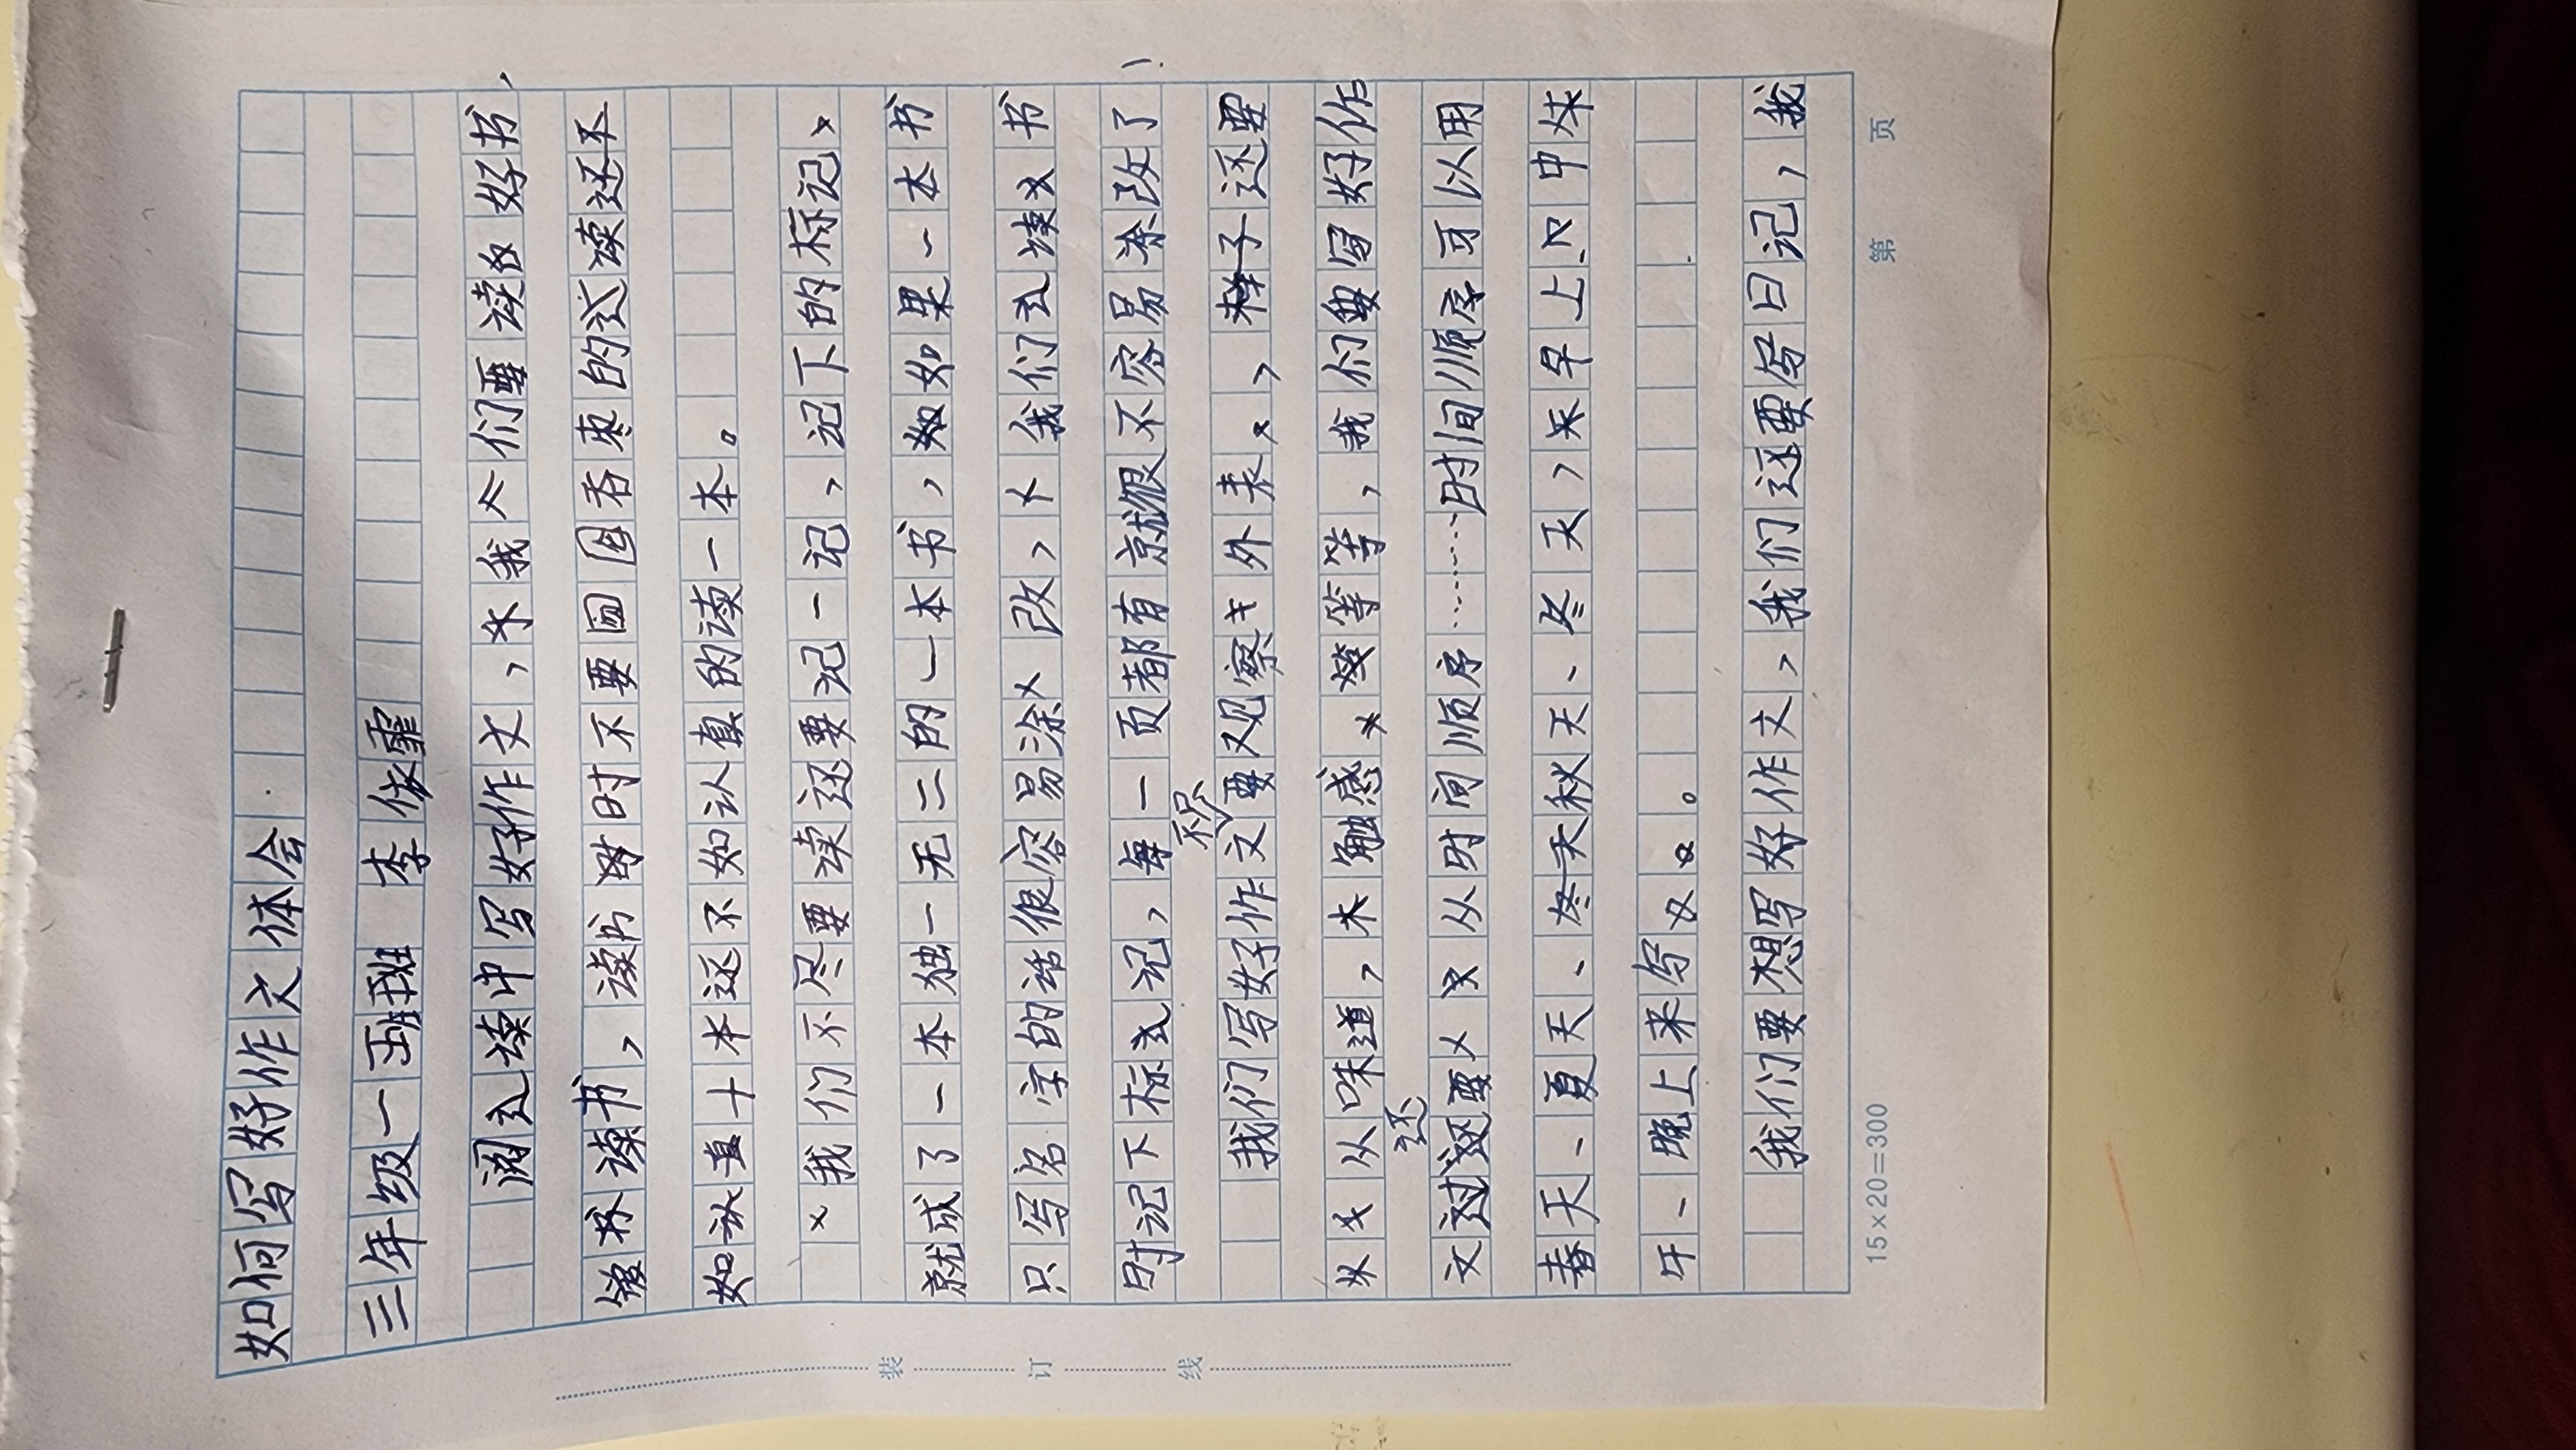 如何写好作文体会
三年级一班 李依霏
阅读中写好作文,我们要读好书,
读书,读书时不要囫囵吞枣的读还不
如认真十本还不如认真的读一本。
我们不尽要读还要记一记,记下的标记,
就成了一本独一无二的一本书,如果一本书
只写名字的话很容易涂改,我们读书
时记下标记,每一页都有就很不容易涂改了!
我们写好作文要观察外表,还要
从味道,触感等等,我们要写好作
文还要从时间顺序……时间顺序可以用
春天、夏天、秋天、冬天,早上中
午、晚上来写。
我们要想写好作文,我们还要写日记,我
装 订 线
15×20=300 第 页